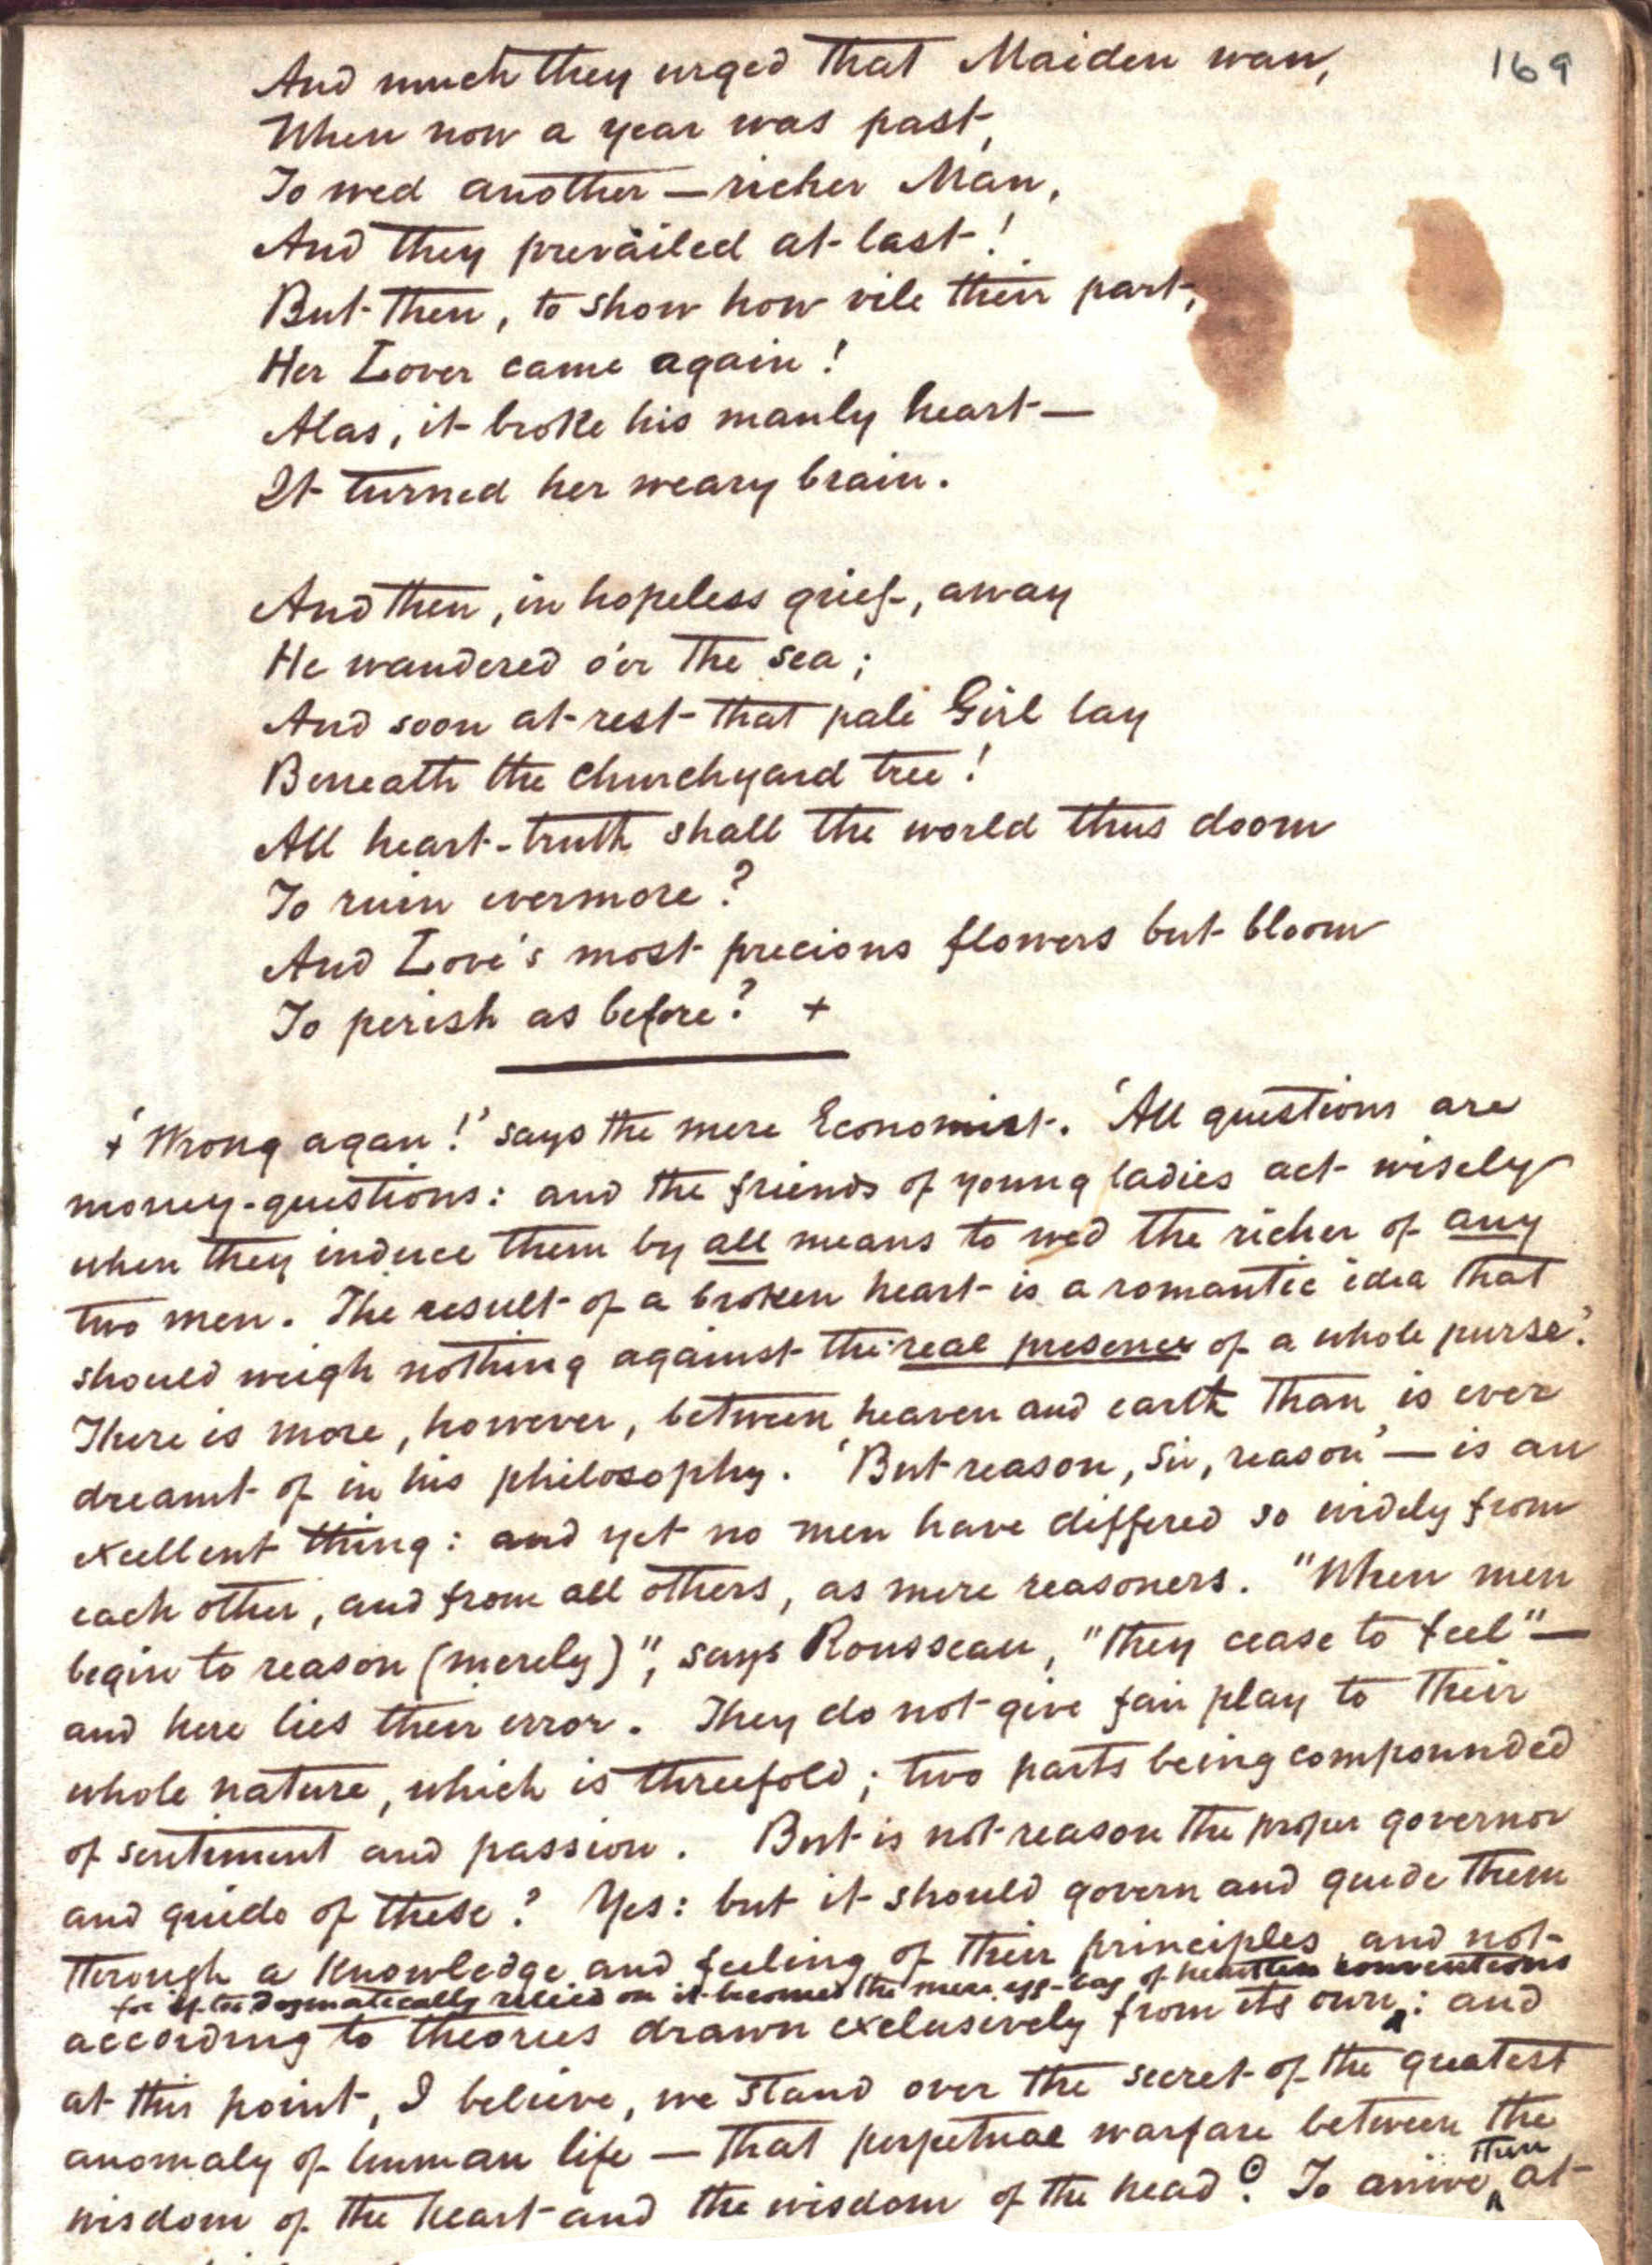 169
And much they urged that Maiden wan,
When now a year was past,
To wed another — richer Man,
And they prevailed at last!
But then, to show how vile their part,
Her Lover came again!
Alas, it broke his manly heart —
It turned her weary brain.
And then, in hopeless grief, away
He wandered o'er the sea;
And soon at rest that pale Girl lay
Beneath the churchyard tree!
All heart-truth shall the world thus doom
To ruin evermore?
And Love's most precious flowers but bloom
To perish as before? +
+ 'Wrong agan!' says the mere Economist. 'All questions are
money-questions: and the friends of young ladies act wisely
when they induce them by all means to wed the richer of any
two men. The result of a broken heart is a romantic idea that
should weigh nothing against the real presence of a whole purse.'
There is more, however, between heaven and earth than is ever
dreamt of in his philosophy. 'But reason, Sir, reason' — is an
excellent thing: and yet no men have differed so widely from
each other, and from all others, as mere reasoners. "When men
begin to reason (merely)", says Rousseau, "they cease to feel" —
and here lies their error. They do not give fair play to their
whole nature, which is threefold; two parts being compounded
of sentiment and passion. But is not reason the proper governor
and guide of these? Yes: but it should govern and guide them
through a knowledge and feeling of their principles and not
for if too dogmatically relied on it becomes the mere of heartless conventions
according to theories drawn exclusively from its own: and
at this point, I believe, we stand over the secret of the greatest
anomaly of human life — that perpetual warfare between the
then
wisdom of the heart and the wisdom of the head. To arrive at